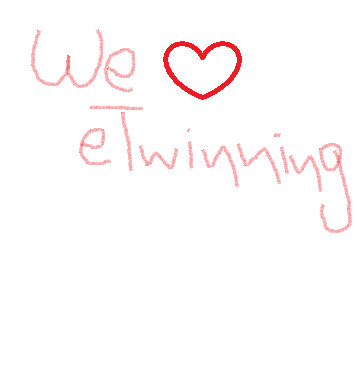 We ❤
eTwinning